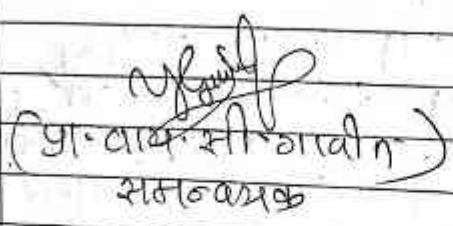 (प्रा. वाय. सी. गावीत)
समन्वयक